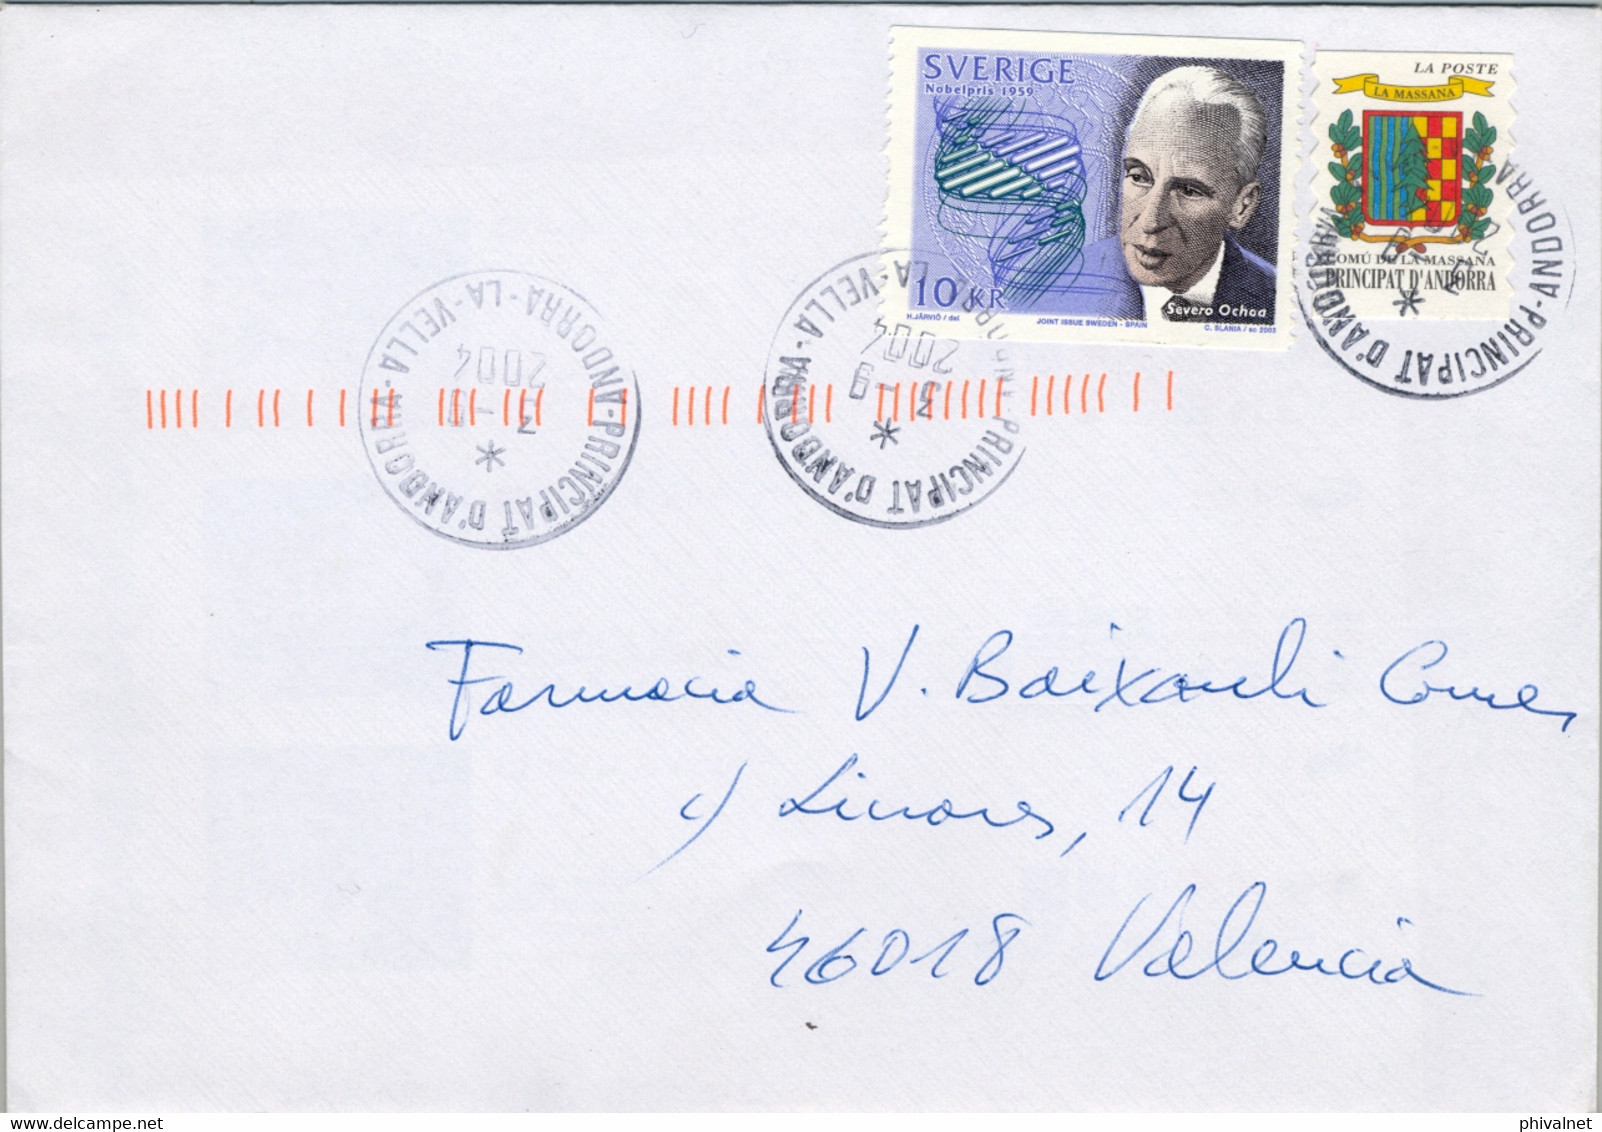 SVERIGE
Nobelpris 1959
10 KR
Severo Ochoa
H.JÄRVIÖ / del
JOINT ISSUE SWEDEN - SPAIN
C. SLANIA / sc 2003
LA POSTE
LA MASSANA
COMÚ DE LA MASSANA
PRINCIPAT D'ANDORRA
ANDORRA-LA-VELLA-ANDORRA-PRINCIPAT D'ANDORRA
2004
3-9
*
ANDORRA-LA-VELLA-ANDORRA-PRINCIPAT D'ANDORRA
2004
3-9
*
PRINCIPAT D'ANDORRA
*
Farmacia V. Baixauli Comes
c/ Linares, 14
46018 Valencia
delcampe.net
phivalnet